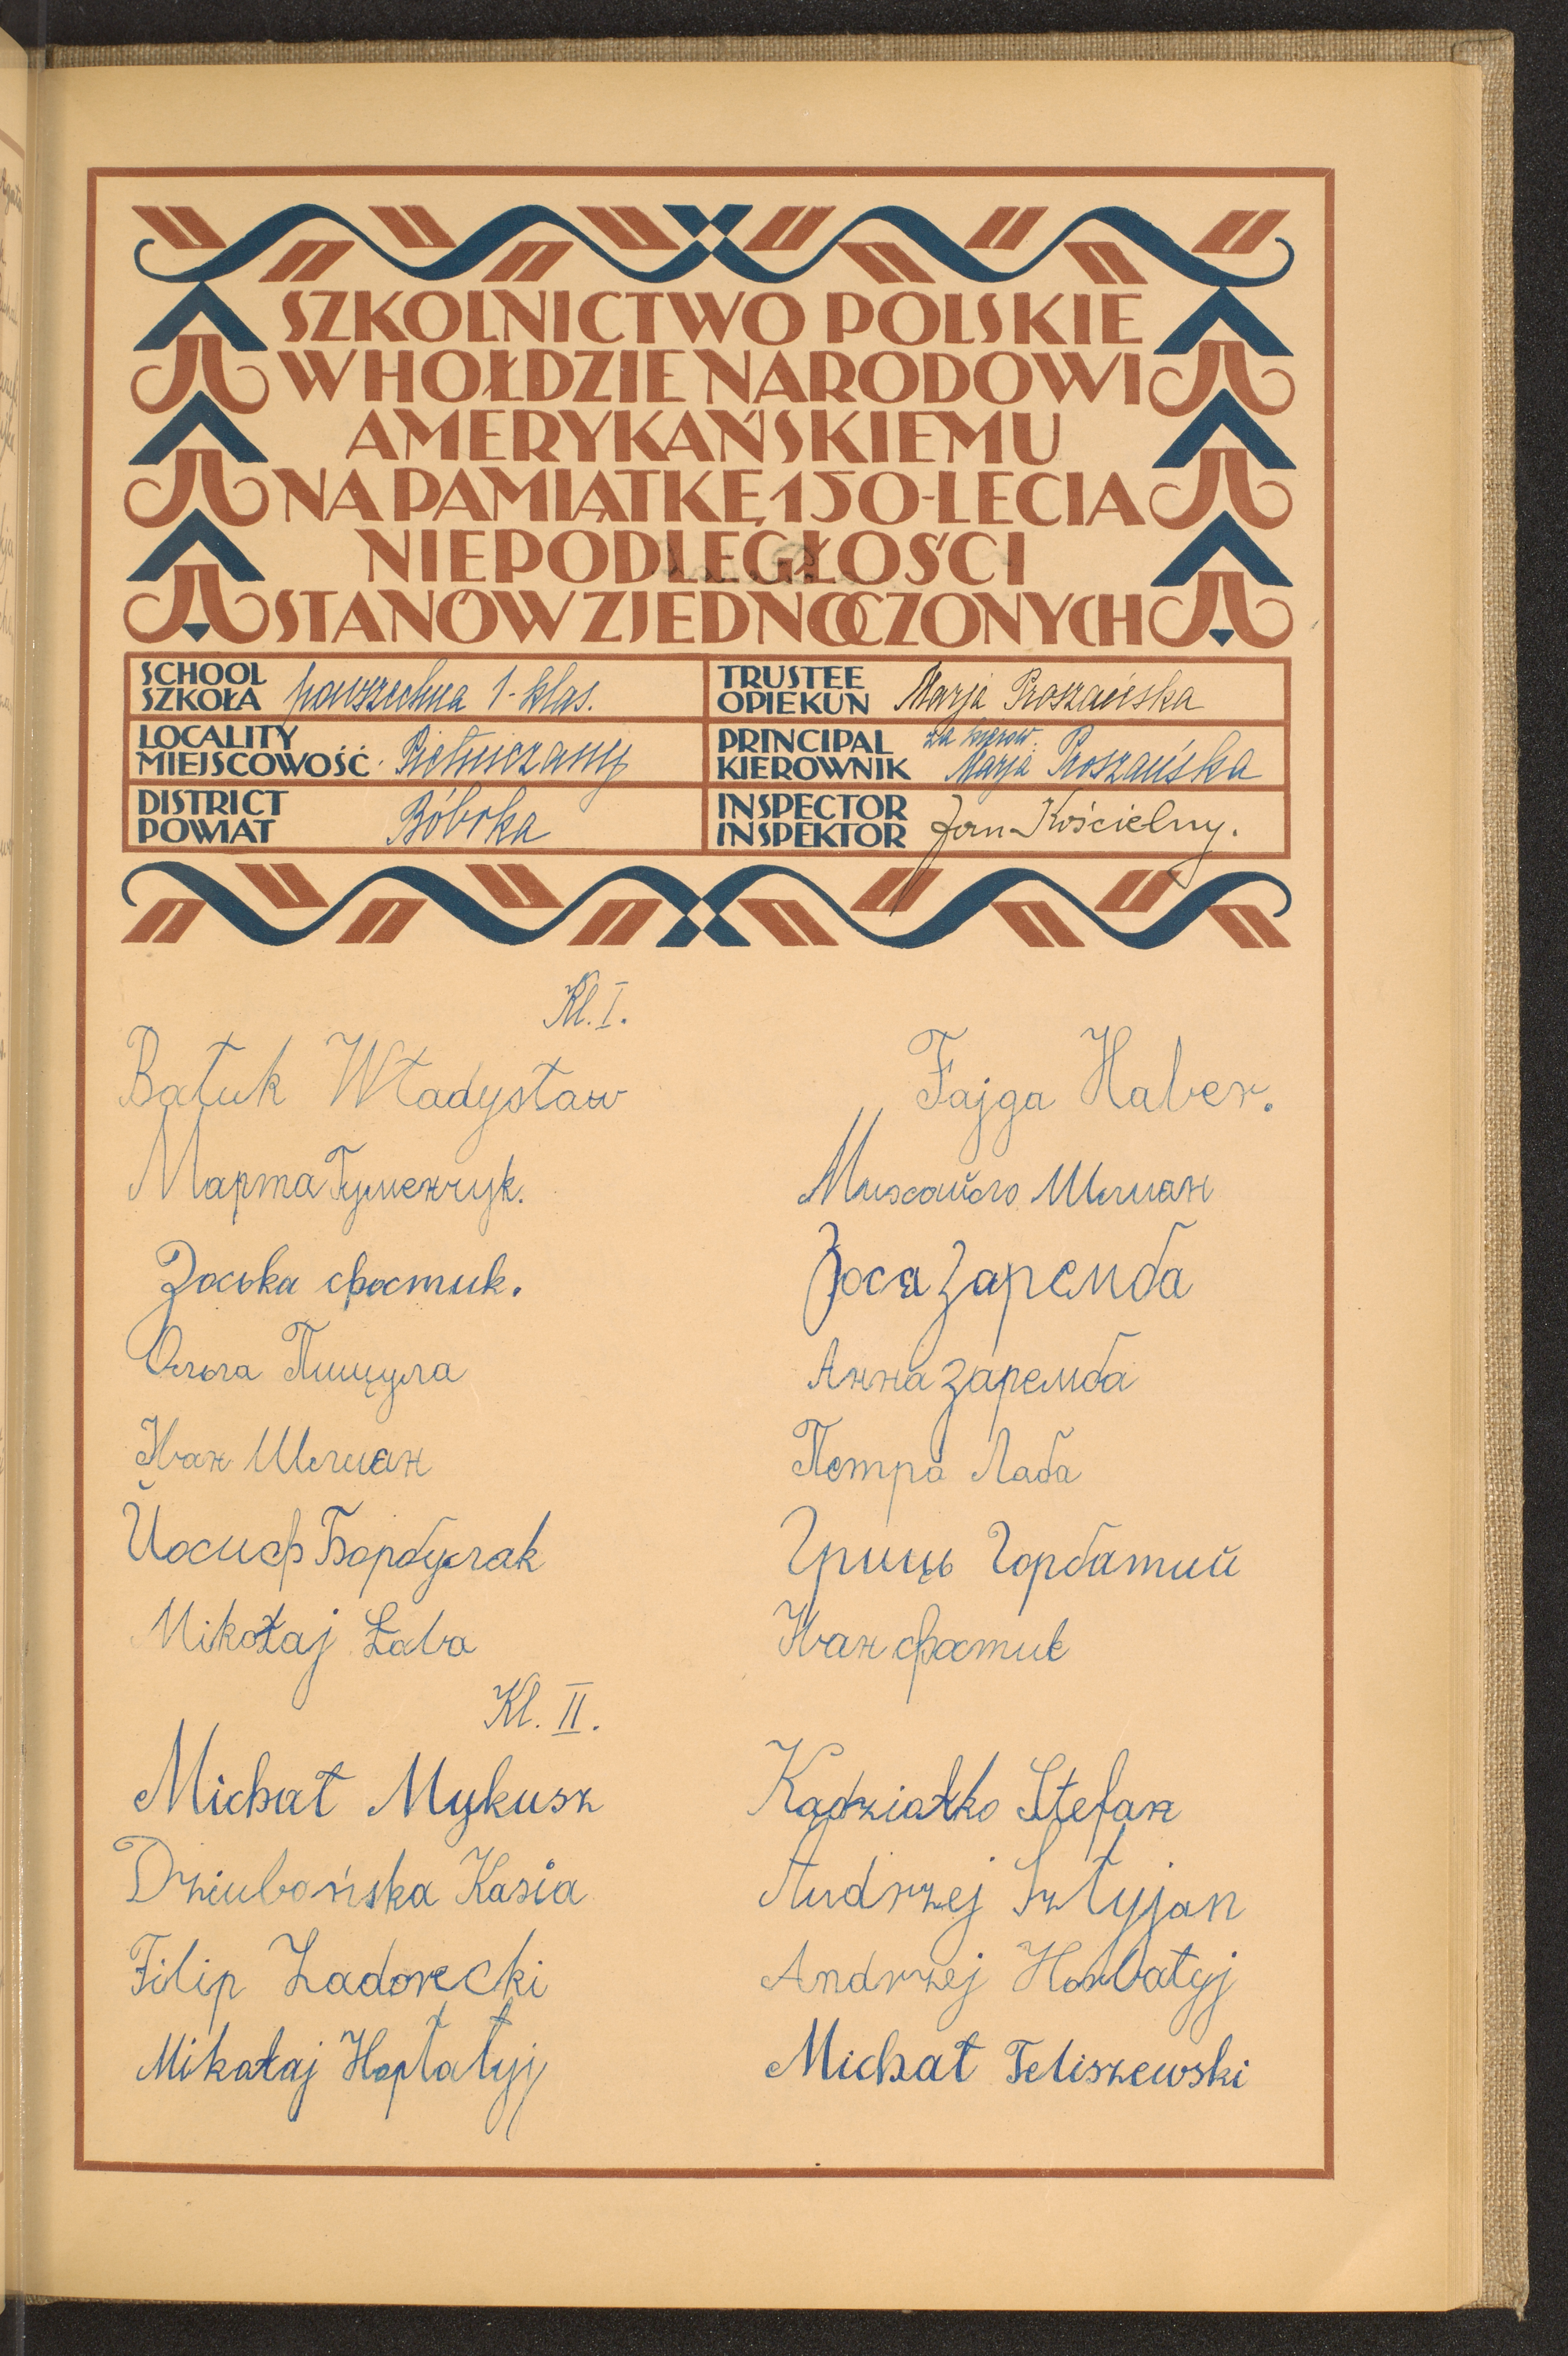 SZKOLNICTWO POLSKIE
W HOŁDZIE NARODOWI
AMERYKAŃSKIEMU
NA PAMIĄTKĘ 150-LECIA
NIEPODLEGŁOŚCI
STANÓW ZJEDNOCZONYCH
SCHOOL
SZKOŁA powszechna 1-klas.
TRUSTEE
OPIEKUN Marja Proszańska
LOCALITY
MIEJSCOWOŚĆ Pietniczany
PRINCIPAL za kierow.
KIEROWNIK Marja Proszańska
DISTRICT
POWIAT Bóbrka
INSPECTOR
INSPEKTOR Jan Kościelny.
Kl. I.
Batuk Władysław
Fajga Haber.
Марта Гуменчук.
Михайло Шлиан
Зоська фостик.
Зося Заремба
Ольга Пищула
Анна Заремба
Иван Шлиан
Петро Лаба
Йосиф Борбуляк
Гриць Горбатий
Mikołaj Łaba
Иван фостик
Kl. II.
Michał Mykusz
Kądziałko Stefan
Dziubańska Kasia
Andrzej Sztyjan
Filip Zadorecki
Andrzej Horbatyj
Mikołaj
Michał Teliszewski